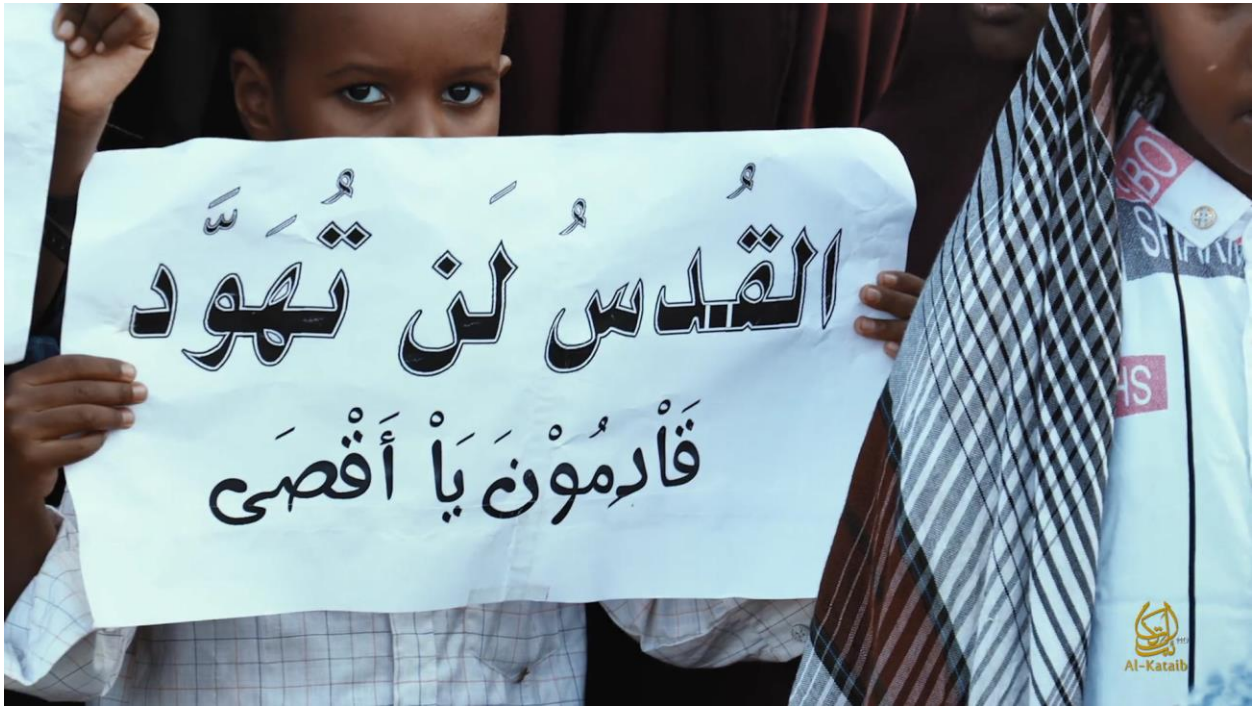 القُدسُ لَن تُهَوَّد
قَاْدِمُوْنَ يَاْ أَقْصَى
HS
Al-Kataib